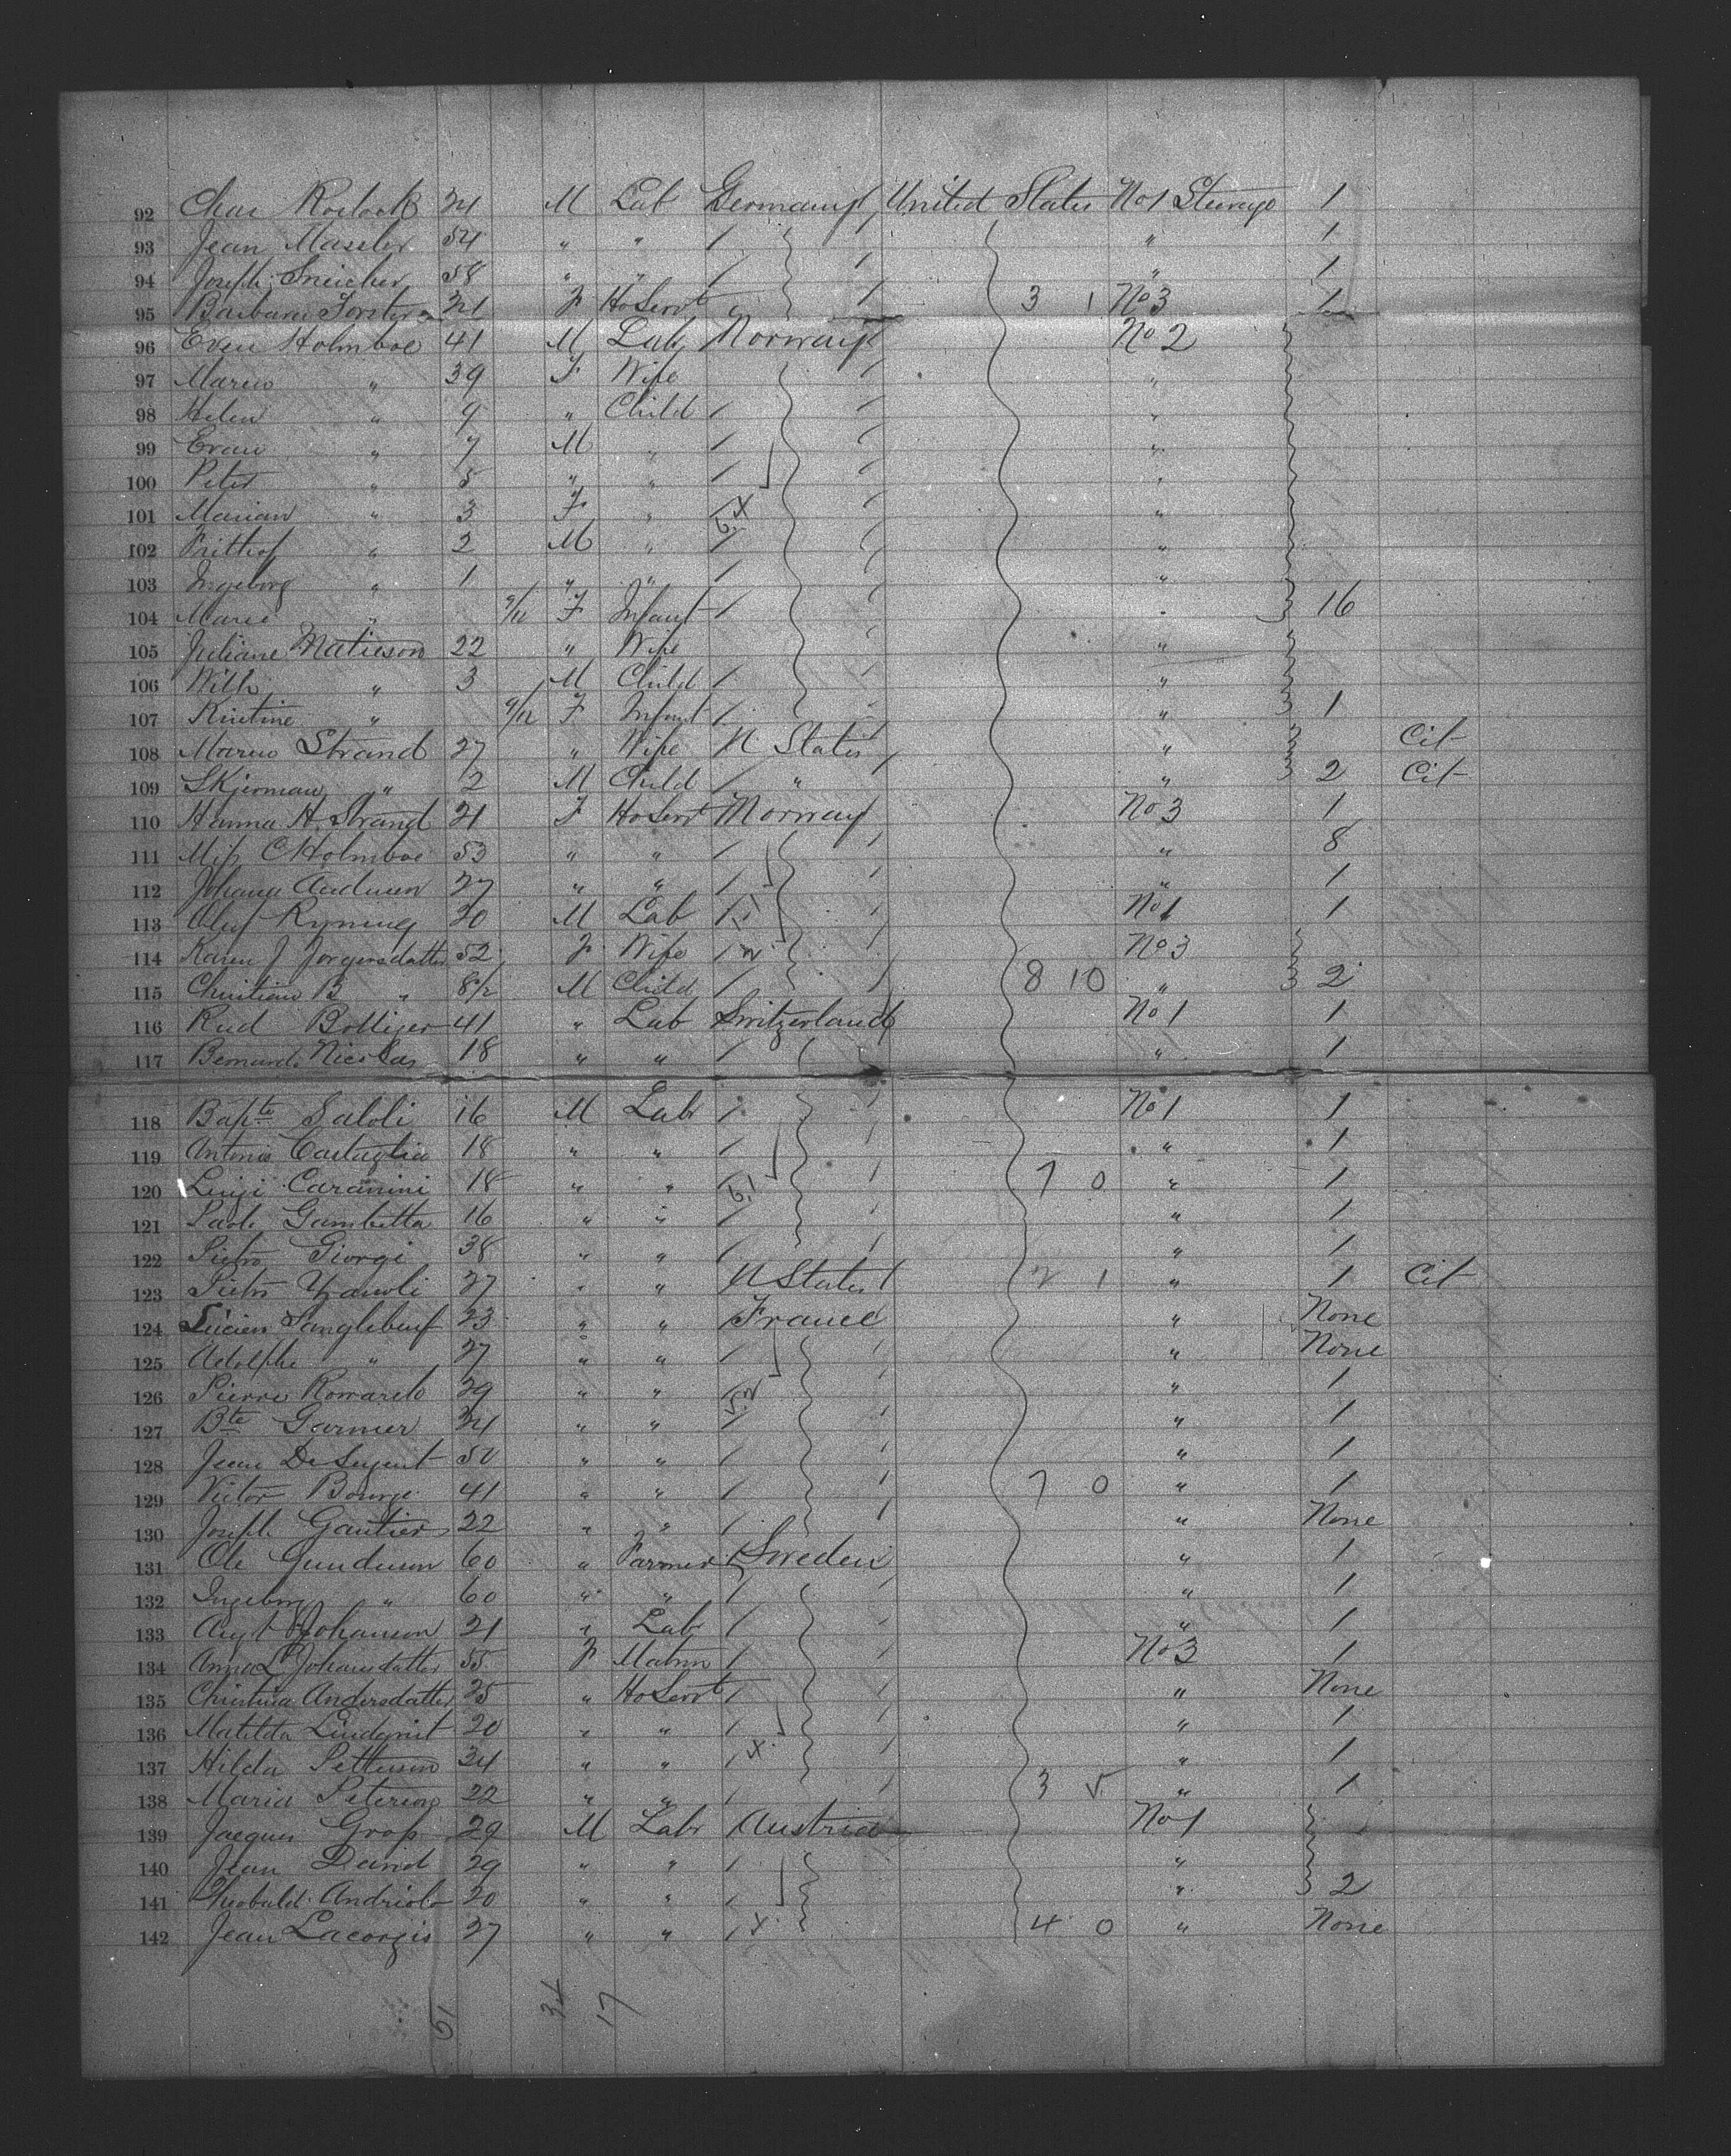 92 Chas Rostock 34 M Lab Germany United States No 1 Steerage 1
93 Jean Masseler 54 " " " 1
94 Joseph 58 " " " 1
95 Barbara Forster 21 F Ho Servt " 3 1 No 3 1
96 Even Holmboe 41 M Lab Norway No 2
97 Maren " 39 F Wife "
98 Helen " 9 " Child "
99 Evan " 7 M " "
100 Peter " 5 " " "
101 Marian " 3 F " "
102 Frithof " 2 M " "
103 Ingeborg " 1 " " "
104 Marie " 9/12 F Infant " 16
105 Juliane Matieson 22 " Wife "
106 Wilh " 3 M Child "
107 Kristine " 9/12 F Infant " 1
108 Maren Strand 27 " Wife U States " Cit
109 Skjerman " 2 M Child " " 2 Cit
110 Hanna H. Strand 21 F Ho Servt Norway No 3 1
111 Miss C Holmboe 53 " " " 8
112 Johana 27 " " " 1
113 Oluf Ryning 30 M Lab No 1 1
114 Karen J Jorgensdatter 52 F Wife No 3
115 Christian B " 8 1/2 M Child 8 10 " 2
116 Rud Bolliger 41 " Lab Switzerland No 1 1
117 Bernardo Nicolas 18 " " " 1
118 Bapte Saloli 16 M Lab No 1 1
119 Antonio Castaglia 18 " " " 1
120 Luigi Caranini 18 " " 7 0 " 1
121 Paolo Gambetta 16 " " " 1
122 Pietro Giorgi 38 " " " 1
123 Pietro 27 " " U States 2 1 " 1 Cit
124 Lucien Sanglebeuf 23 " " France " None
125 Adolphe " 27 " " " None
126 Pierre Romarelo 29 " " " 1
127 Bte Garnier 34 " " " 1
128 Jean De Sergent 50 " " " 1
129 Victor Bourge 41 " " 7 0 " 1
130 Joseph Gautier 22 " " " None
131 Ole Gunderson 60 " Farmer Sweden " 1
132 Ingeborg " 60 " " " 1
133 Augt Johanson 21 " Lab " 1
134 Anna L Johansdatter 55 F Matron No 3 1
135 Christina Andersdatter 25 " Ho Servt " None
136 Matilda Lindqvist 20 " " " 1
137 Hilda Petterson 34 " " " 1
138 Maria Peterson 22 " " 3 5 " 1
139 Jacques Gross 29 M Lab Austria No 1
140 Jean David 29 " " "
141 Theobald Andriolo 20 " " " 2
142 Jean Lacorgis 27 " " 4 0 " None
51 34 17